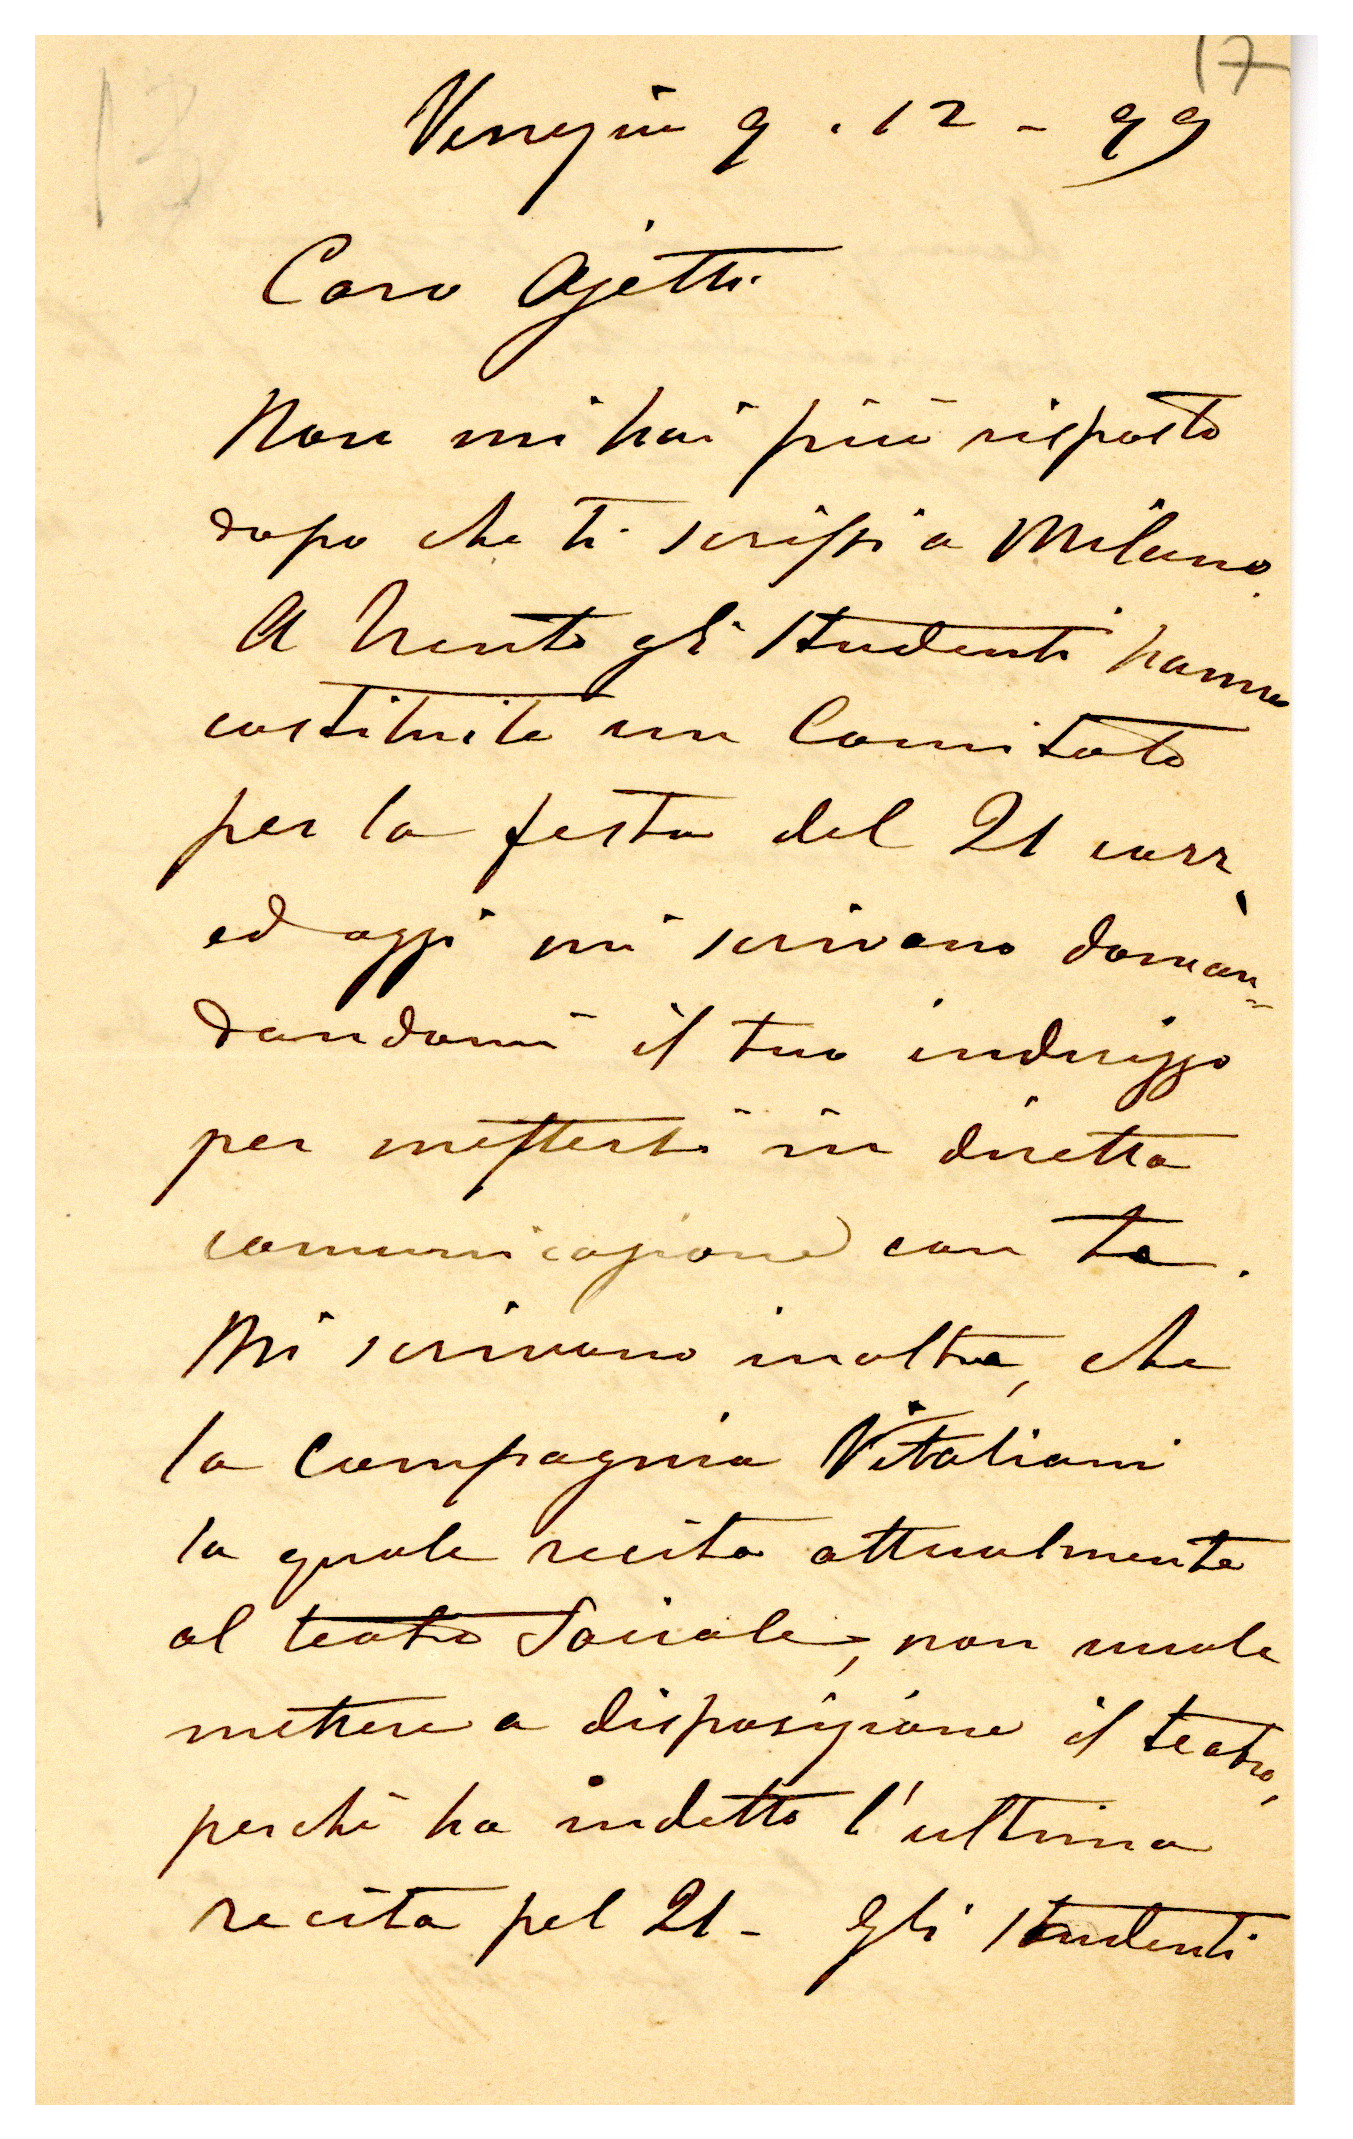 17
13
Venezia 9.12-99
Caro Ojetti
Non mi hai più risposto
dopo che ti scrissi a Milano.
A Trento gli studenti hanno
costituito un Comitato
per la festa del 21 corr,
ed oggi mi scrivono doman-
dandomi il tuo indirizzo
per mettersi in diretta
comunicazione con te.
Mi scrivono inoltre, che
la Compagnia Vitaliani
la quale recita attualmente
al teatro Sociale, non vuole
mettere a disposizione il teatro,
perchè ha indetto l'ultima
recita pel 21- Gli studenti